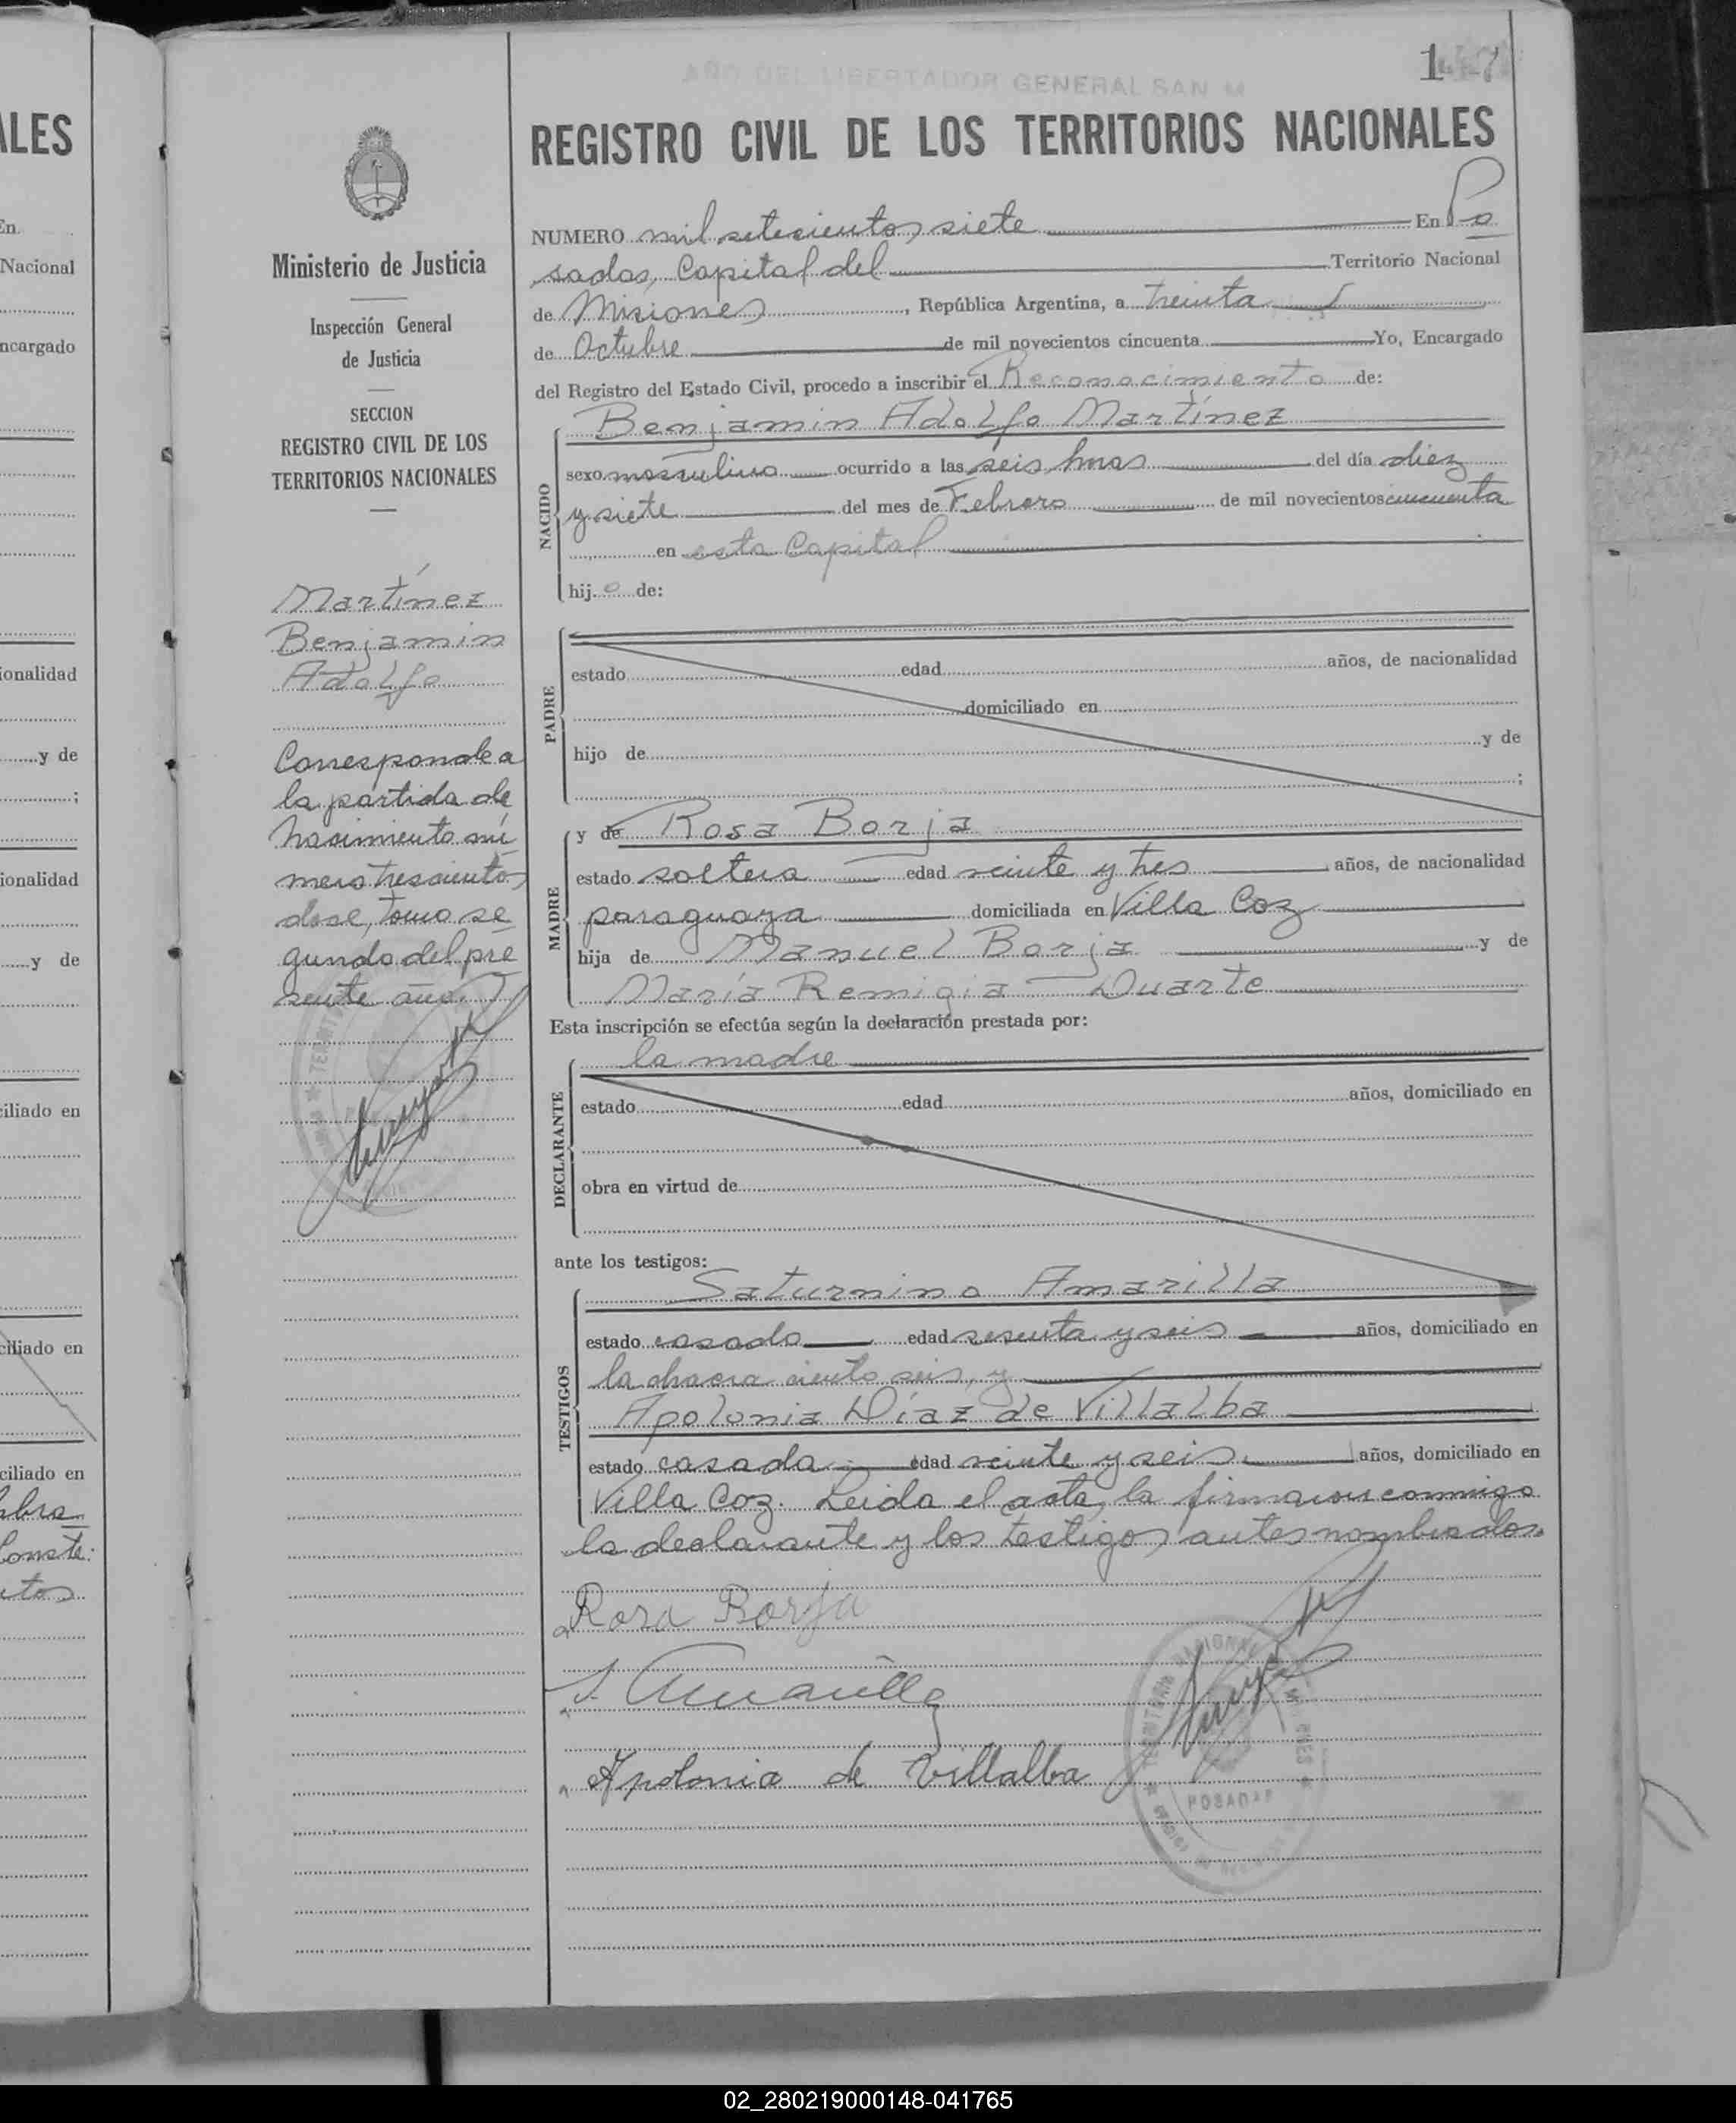 AÑO DEL LIBERTADOR GENERAL SAN M
1
REGISTRO CIVIL DE LOS TERRITORIOS NACIONALES
NUMERO mil setecientos siete En Po
sadas, Capital del Territorio Nacional
de Misiones, República Argentina, a treinta
de Octubre de mil novecientos cincuenta Yo, Encargado
del Registro del Estado Civil, procedo a inscribir el Reconocimiento de:
NACIDO
Benjamin Adolfo Martínez
sexo masculino ocurrido a las seis horas del día diez
y siete del mes de Febrero de mil novecientos cincuenta
en esta Capital
hij o de:
PADRE
estado edad años, de nacionalidad
domiciliado en
hijo de y de
;
MADRE
y de Rosa Borja
estado soltera edad veinte y tres años, de nacionalidad
paraguaya domiciliada en Villa Coz
hija de Manuel Borja y de
María Remigia Duarte
Esta inscripción se efectúa según la declaración prestada por:
DECLARANTE
la madre
estado edad años, domiciliado en
obra en virtud de
ante los testigos:
TESTIGOS
Saturnino Amarilla
estado casado edad sesenta y seis años, domiciliado en
la chacra ciento seis, y
Apolonia Díaz de Villalba
estado casada edad veinte y seis años, domiciliado en
Villa Coz. Leida el acta, la firmaron conmigo
la declarante y los testigos antes nombrados.
Rosa Borja
S. Amarilla
Apolonia de Villalba
POSADAS
Ministerio de Justicia
Inspección General
de Justicia
SECCION
REGISTRO CIVIL DE LOS
TERRITORIOS NACIONALES
Martínez
Benjamin
Adolfo
Corresponde a
la partida de
nacimiento nú
mero trescientos
doce, tomo se
gundo del pre
sente año.
ALES
En
Nacional
ncargado
ionalidad
y de
;
ionalidad
y de
iliado en
ciliado en
ciliado en
02_280219000148-041765